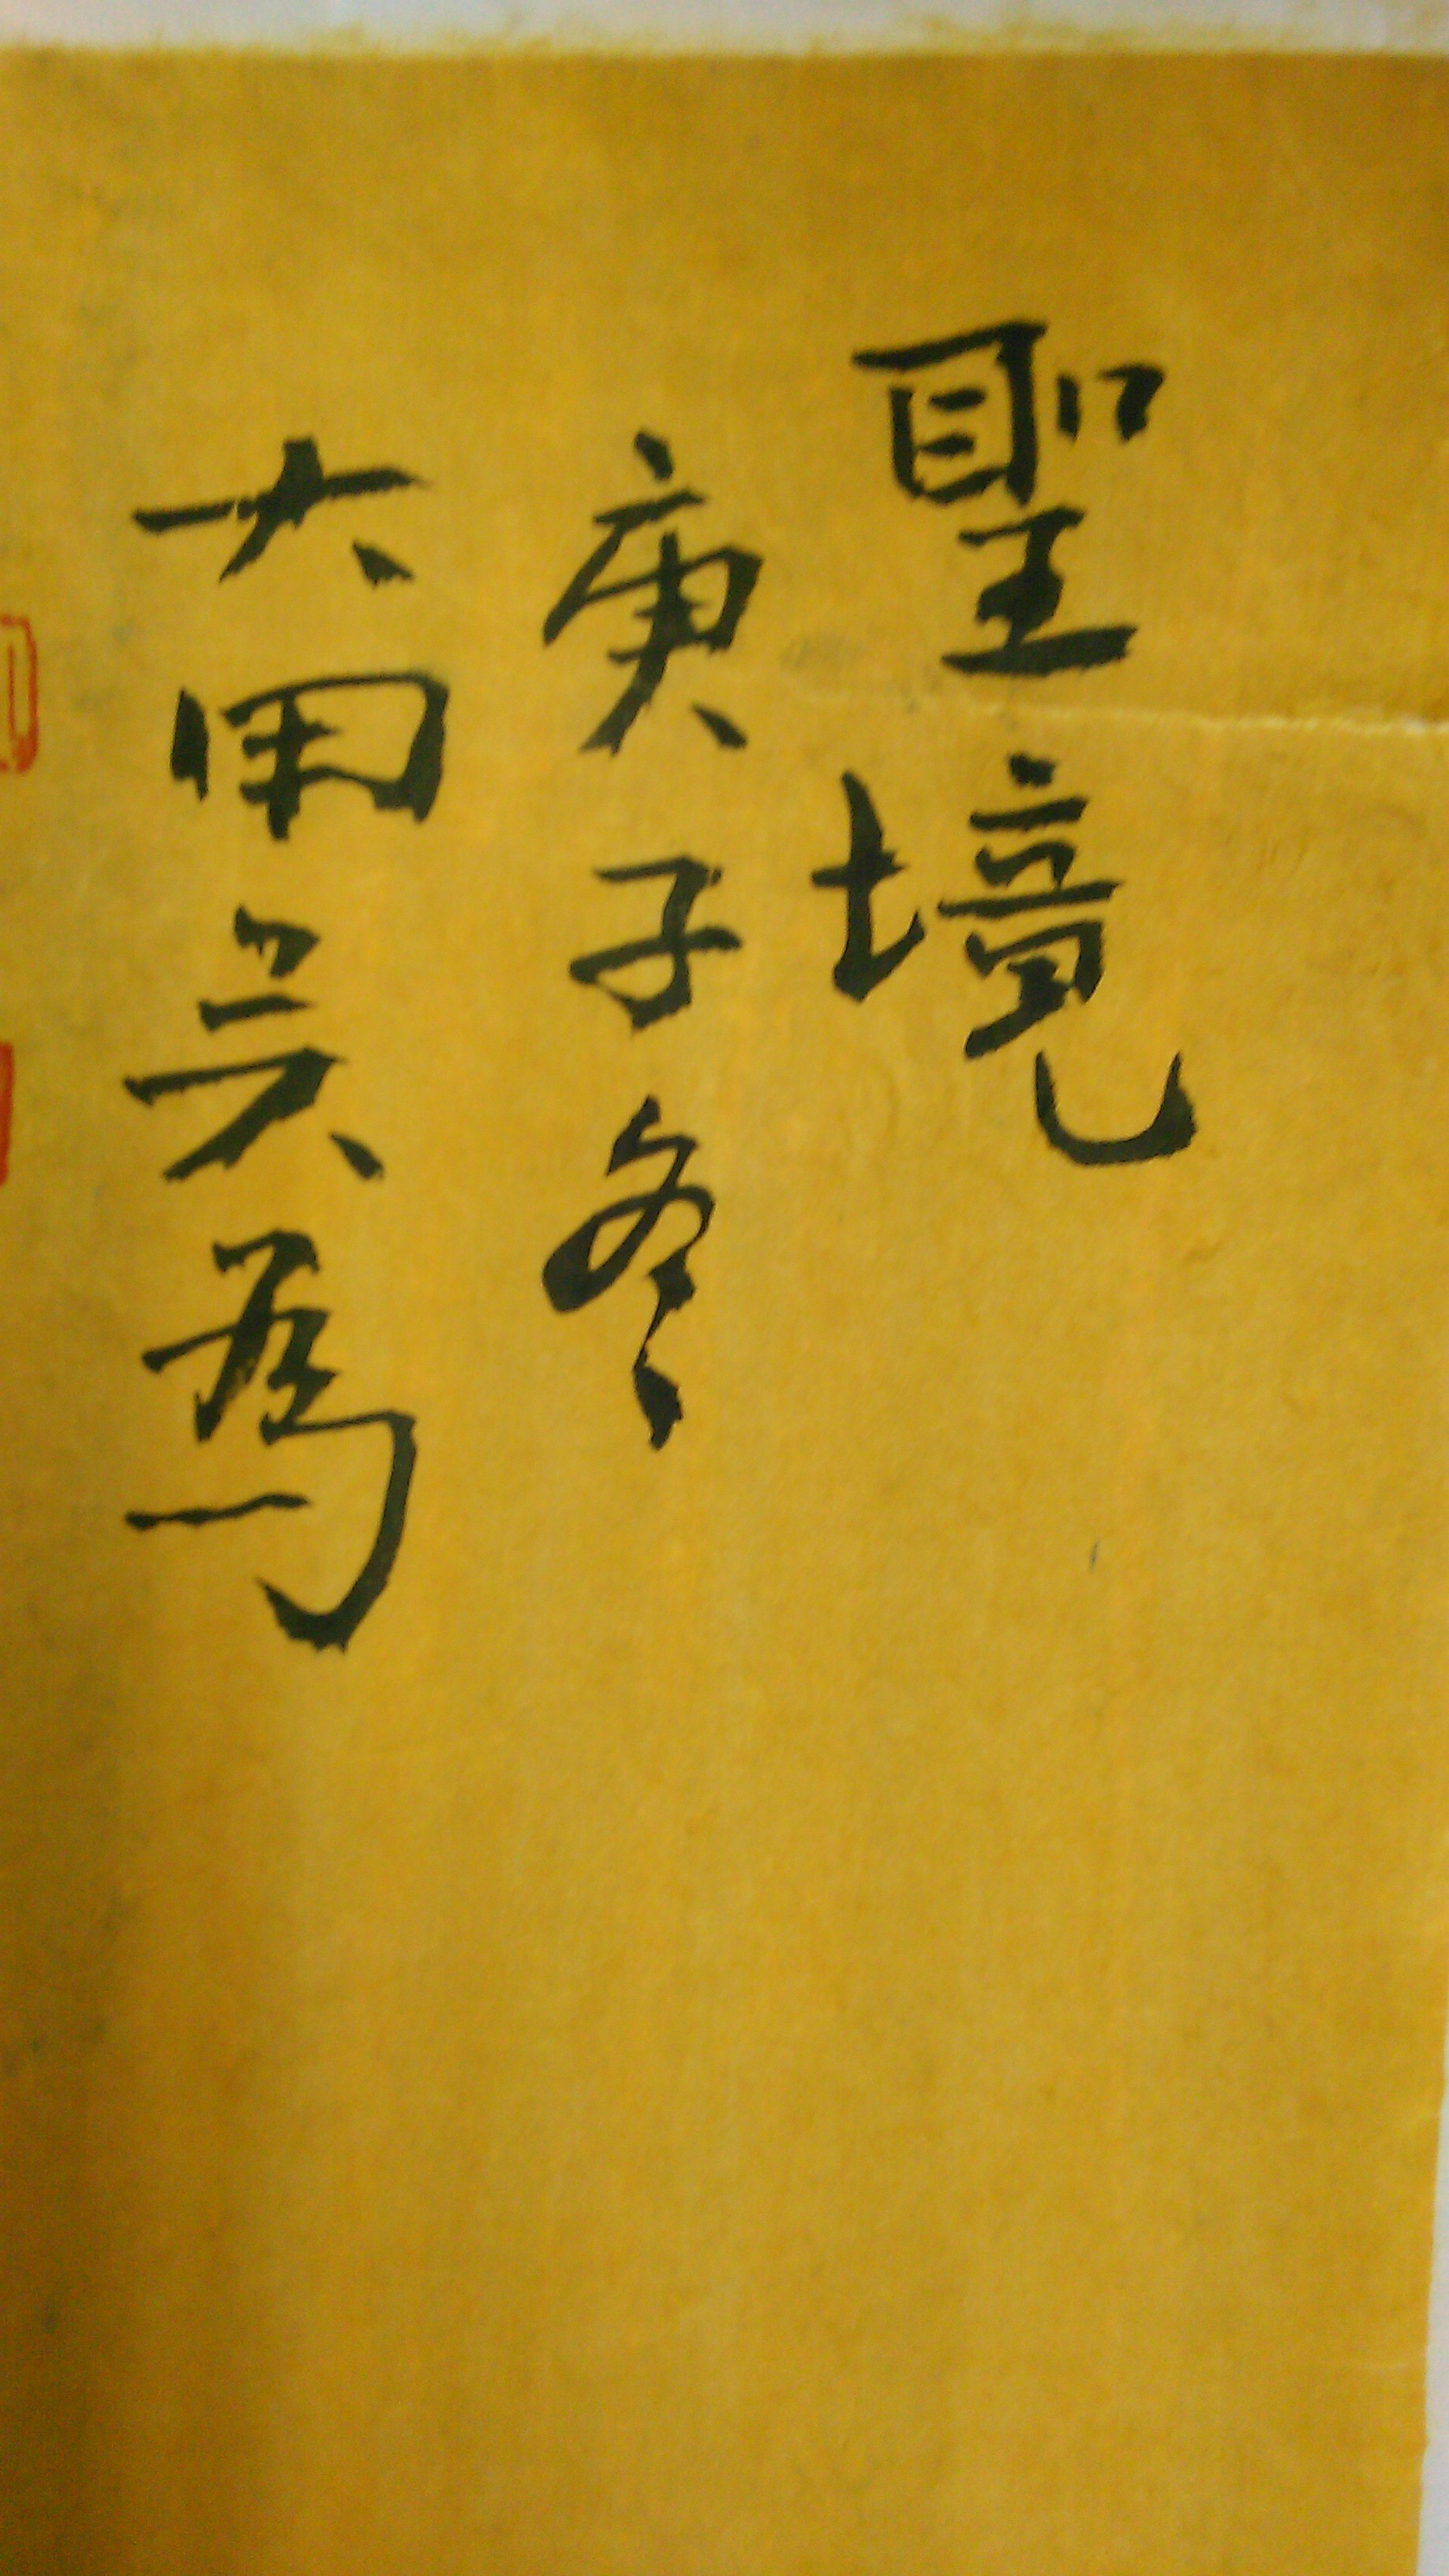 聖境
庚子冬
大田吳為